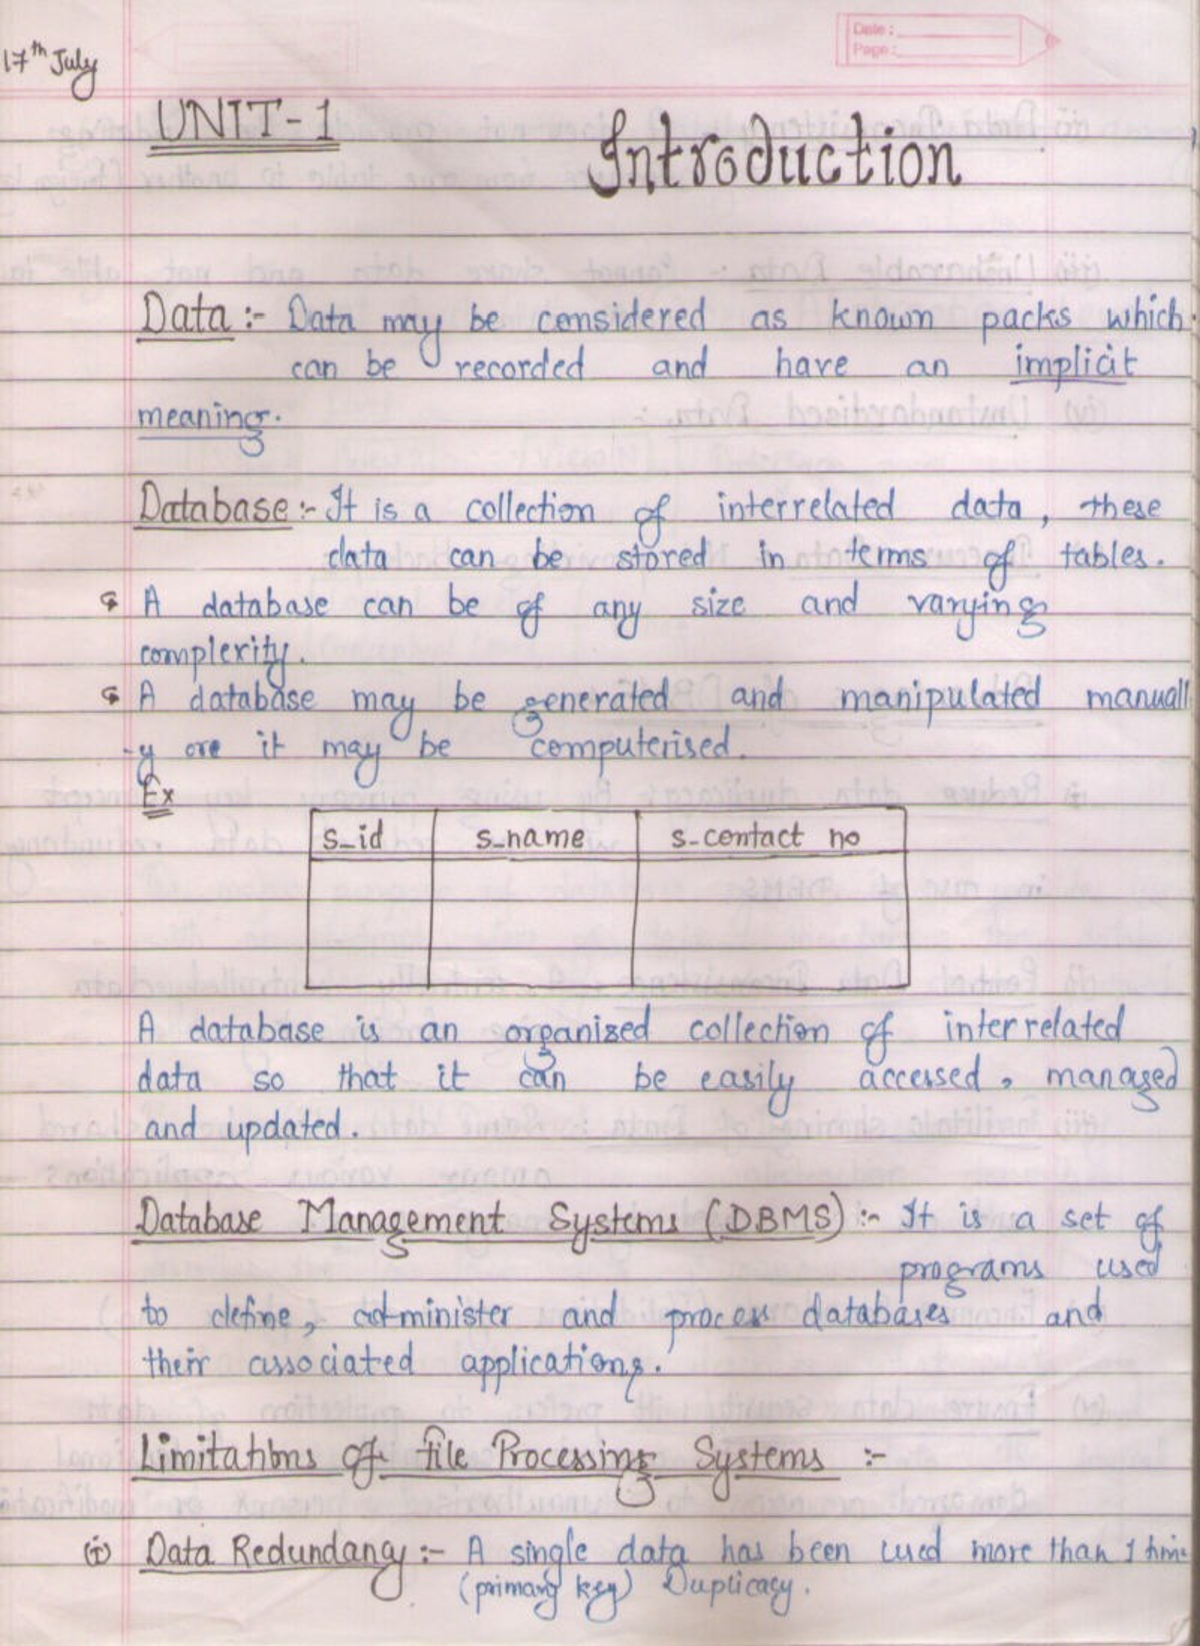 Date:
Page:
17th July
UNIT-1
Introduction
Data :- Data may be considered as known packs which
can be recorded and have an implicit
meaning.
Database :- It is a collection of interrelated data, these
data can be stored in terms of tables.
A database can be of any size and varying
complexity.
A database may be generated and manipulated manuall
-y ore it may be computerised.
Ex
s_id s_name s-contact no
A database is an organized collection of interrelated
data so that it can be easily accessed, managed
and updated.
Database Management Systems (DBMS) :- It is a set of
programs used
to define, administer and process databases and
their associated applications.
Limitations of file Processing Systems :-
(i) Data Redundancy :- A single data has been used more than 1 time
(primary key) Duplicacy.